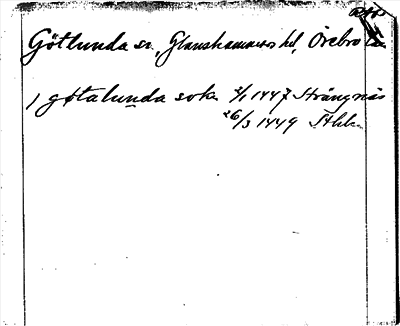 Götlunda sn, Glanshammars hd, Örebro
) gøtalunda sokn 2/1 1447 Strängnäs
26/3 1449 Sthlm